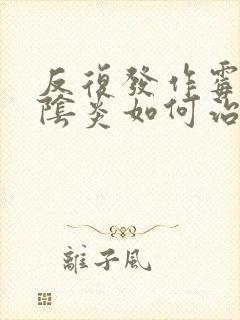 反復發作霉
陰炎如何治
離子風